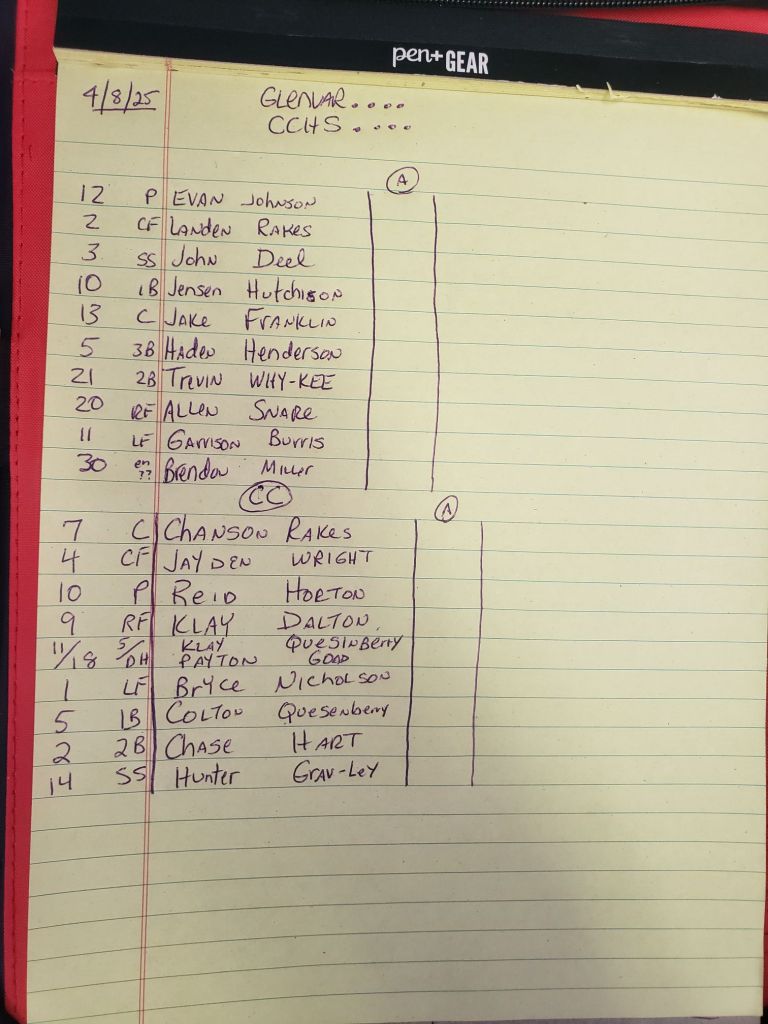 pen+ GEAR
4/8/25 GLENVAR....
CCHS ....
A
12 P EVAN Johnson
2 CF LANden RAKes
3 SS John Deel
10 1B Jensen Hutchison
13 C JAKe FRANKLIN
5 3B HAden Henderson
21 2B TrevIN WHY-KEE
20 RF ALLen SNARe
11 LF GArrison Burris
30 en ?? Brendon Miller
CC
A
7 C CHANSON RAKES
4 CF JAYDEN WRIGHT
10 P ReID HORTON
9 RF KLAY DALTON
11/18 5/DH KLAY QUeSInBerry
PAYTON GOAD
1 LF BrYce NIcHoLSON
5 1B COLTON Quesenberry
2 2B CHASE HART
14 SS Hunter GrAV-LeY